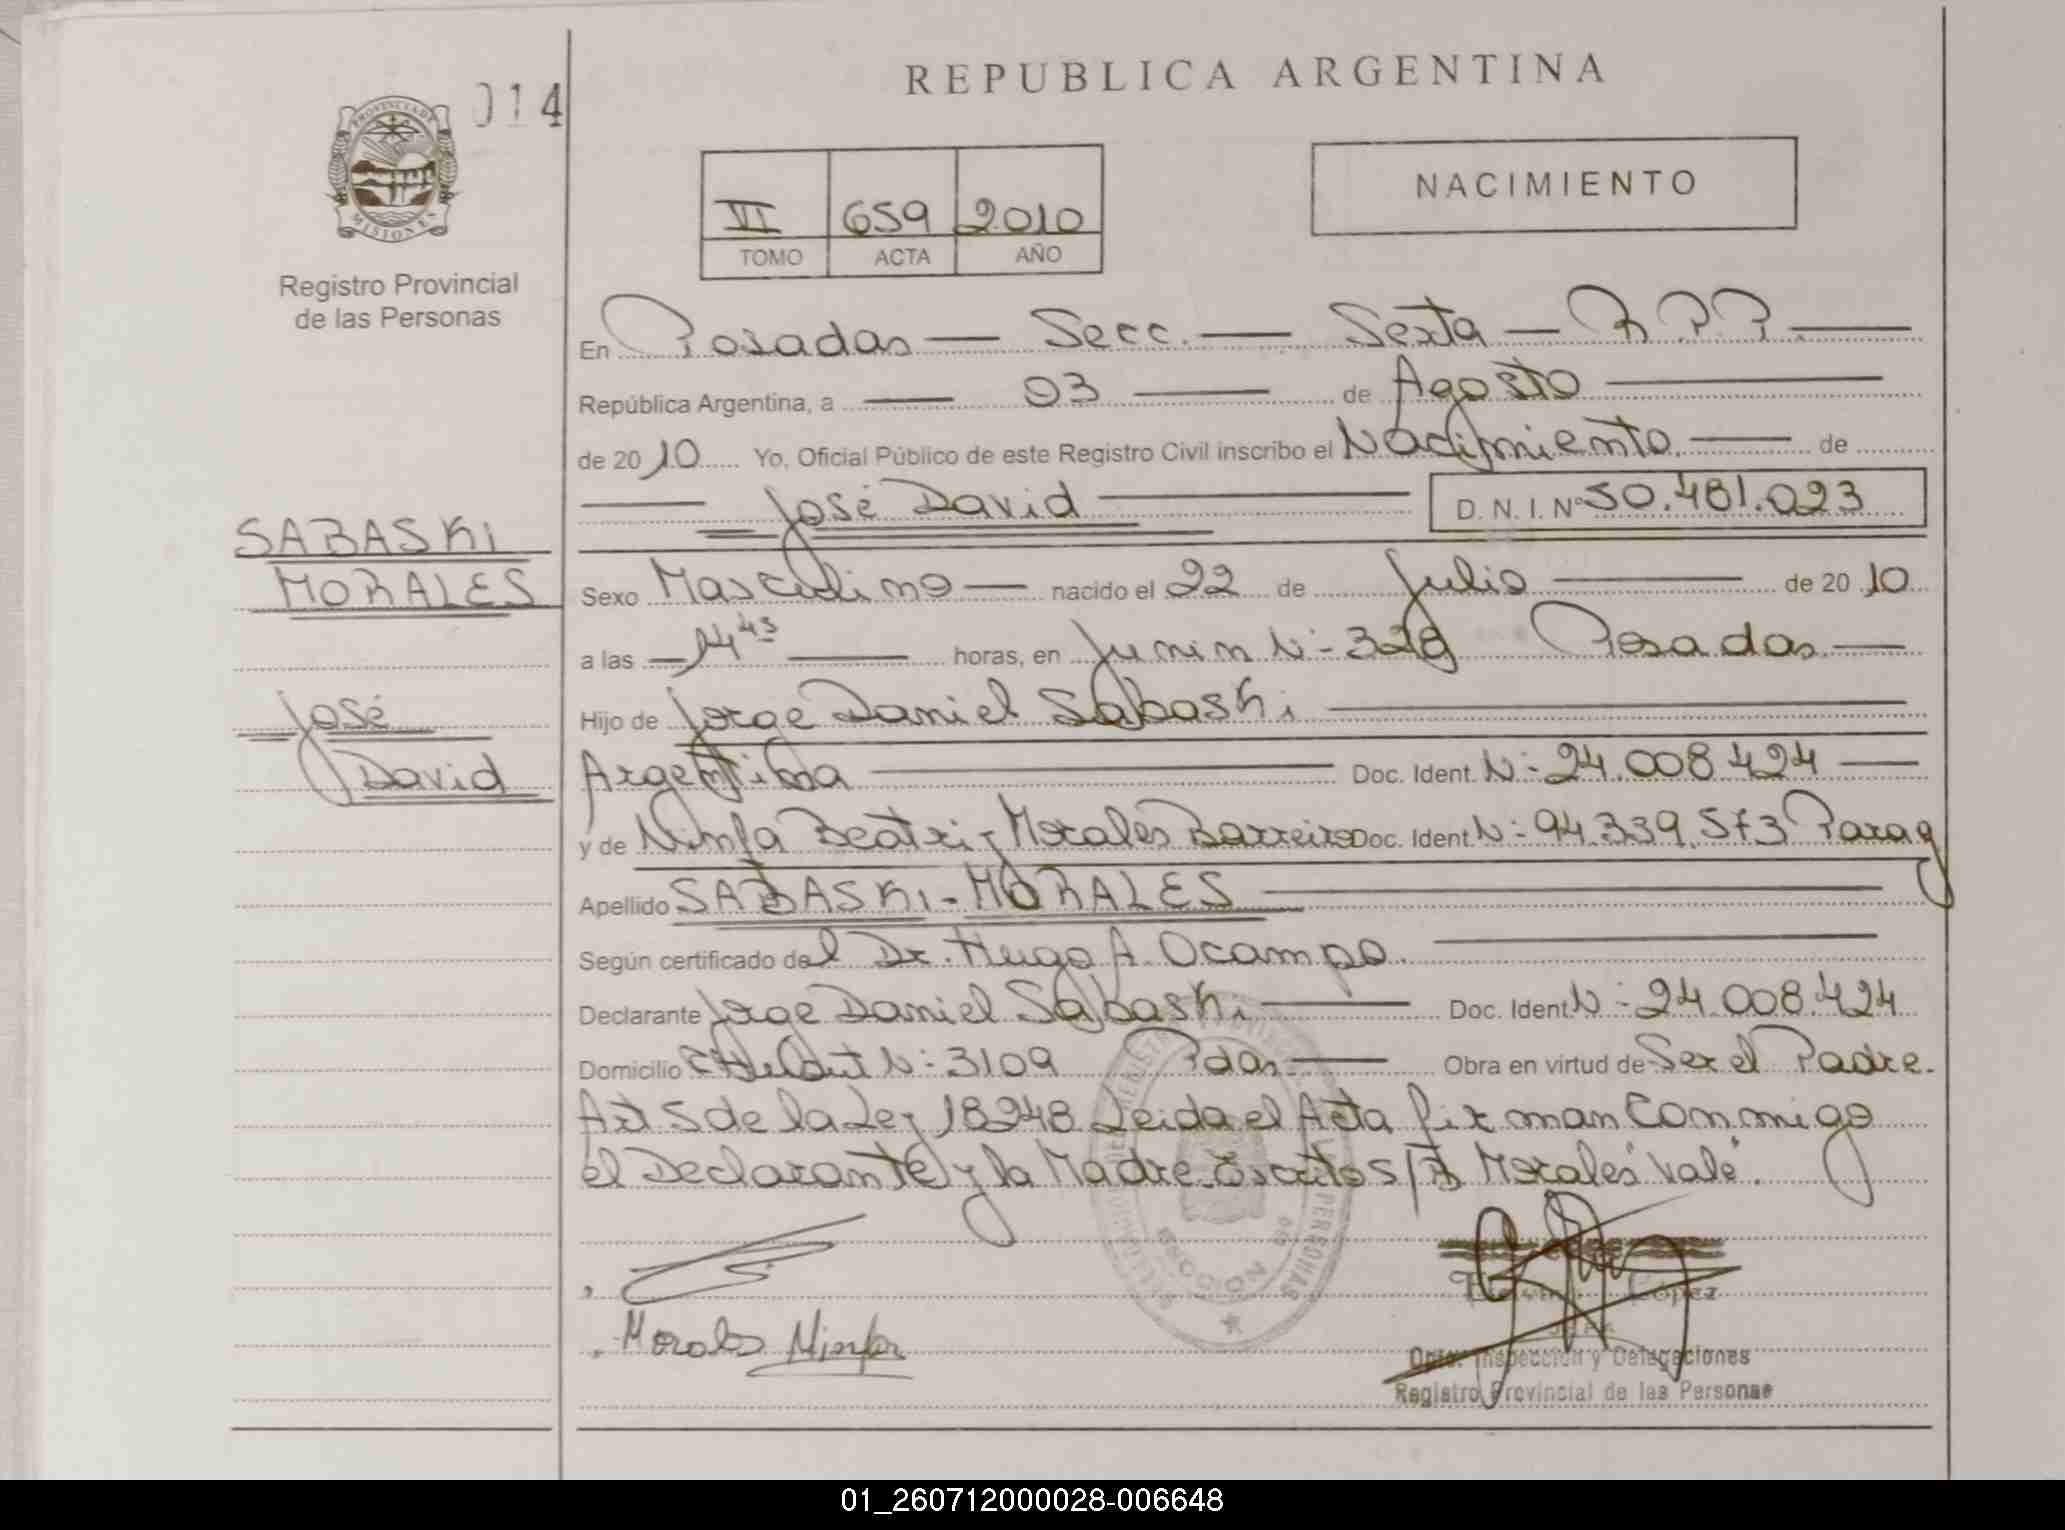 REPUBLICA ARGENTINA
014
PROVINCIA DE MISIONES
Registro Provincial
de las Personas
VI 659 2010
TOMO ACTA AÑO
NACIMIENTO
En Posadas — Secc. — Sexta — R.P.P. —
República Argentina, a — 03 — de Agosto —
de 2010 Yo, Oficial Público de este Registro Civil inscribo el Nacimiento — de
— José David — D. N. I. Nº 50.481.023
SABASKI
MORALES
José
David
Sexo Masculino — nacido el 22 de Julio — de 2010
a las — 14 45 — horas, en Junin N:- 328 Posadas —
Hijo de Jorge Daniel Sabaski —
Argentina — Doc. Ident. N:- 24.008.424 —
y de Ninfa Beatriz Morales Barreiro Doc. Ident. N:- 94.339.573 Parag
Apellido SABASKI - MORALES —
Según certificado del Dr. Hugo A. Ocampo. —
Declarante Jorge Daniel Sabaski — Doc. Ident. N:- 24.008.424
Domicilio N:- 3109 Pdas — Obra en virtud de Ser el Padre.
Art 5 de la Ley 18248 Leida el Acta firman Conmigo
el Declarante y la Madre. Escritos/R Morales "Vale".
Morales Ninfa
López
Dpto. Inspección y Delegaciones
Registro Provincial de las Personas
01_260712000028-006648